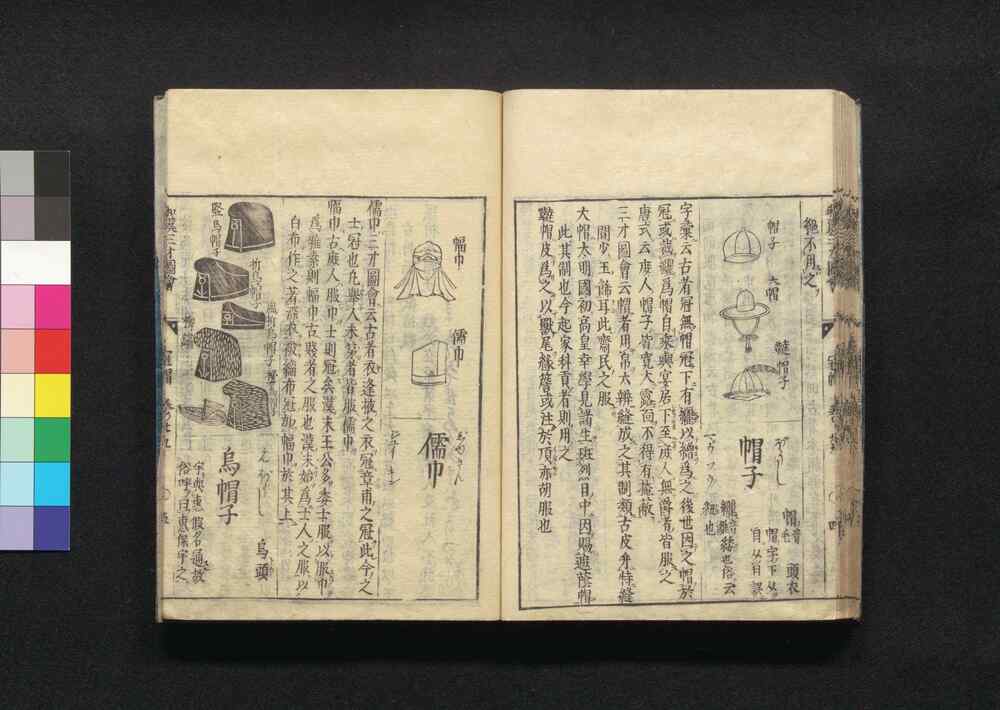 絶不用之
帽子
大帽
韃帽子
帽子
ぼうし
帽音
毛
頭衣
帽字下从
目从日誤
纚音
縰也俗云
字彙云古者冠無帽冠下有纚以繒爲之後世因之帽於
冠或裁纚爲帽自乘輿宴居下至庶人無爵者皆服之
唐式云庶人帽子皆寛大露靣不得有掩蔽
三才圖會云帽者用帛六瓣縫成之其制類古皮弁特縫
間少玉飾耳此齋民之服
大帽太明國初高皇幸學見諸生班烈日中因賜遮蔭帽
此其制也今起家科貢者則用之
韃帽皮爲之以獸尾縁簷或注於頂亦胡服也
幅巾
儒巾
儒巾
じゆきん
儒巾三才圖會云古者衣逢掖之衣冠章甫之冠此今之
士冠也凡擧人未第者皆服儒巾
幅巾古庶人服巾士則冠矣漢末王公多委士服以服巾
爲雅素則幅巾古賤者之服也漢末始爲士人之服以
白布作之著深衣被緇布冠加幅巾於其上
竪烏帽子
折烏帽子
風折烏帽子
烏帽子
えぼし
烏頭
俗呼曰惠保宇之